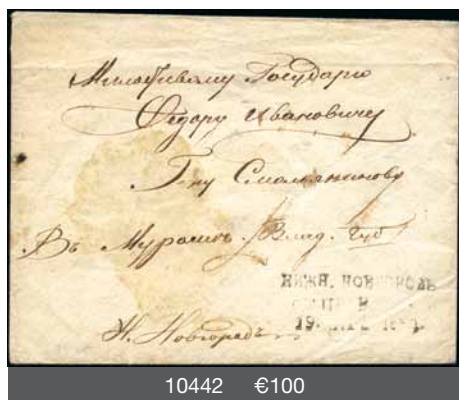 Милостивому Государю
Федору Ивановичу
Г-ну Смольянинову
Въ Муромъ /Влад. Губ/
НИЖН. НОВГОРОДЪ
19.
Н. Новгородъ
10442 €100